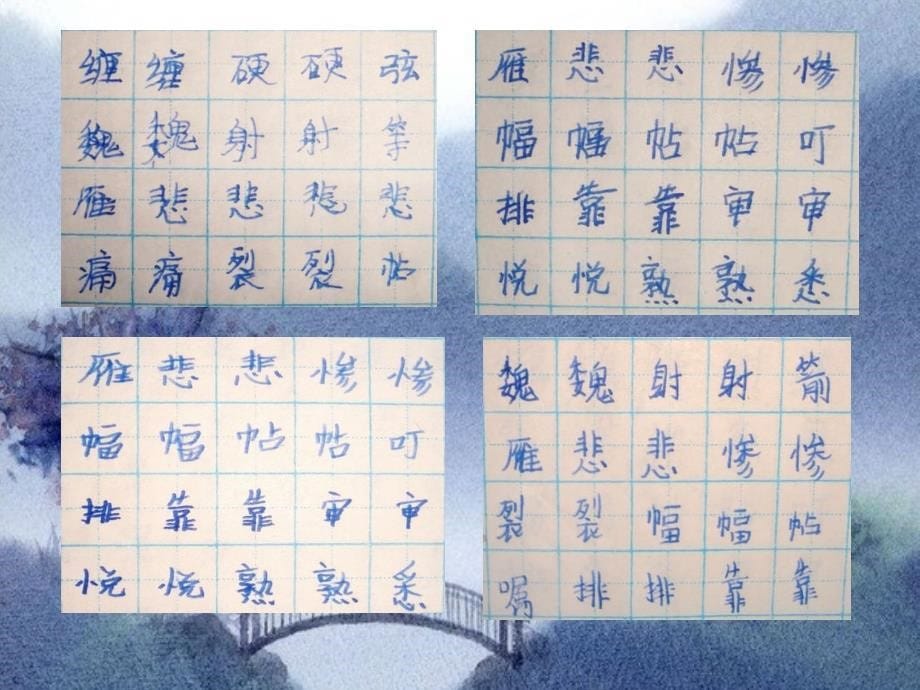 缠 缠 硬 硬 弦
魏 魏 射 射
雁 悲 悲 悲 悲
痛 痛 裂 裂 帖
雁 悲 悲 惨 惨
幅 幅 帖 帖 叮
排 靠 靠 审 审
悦 悦 熟 熟 悉
雁 悲 悲 惨 惨
幅 幅 帖 帖 叮
排 靠 靠 审 审
悦 悦 熟 熟 悉
魏 魏 射 射 箭
雁 悲 悲 惨 惨
裂 裂 幅 幅 帖
嘱 排 排 靠 靠